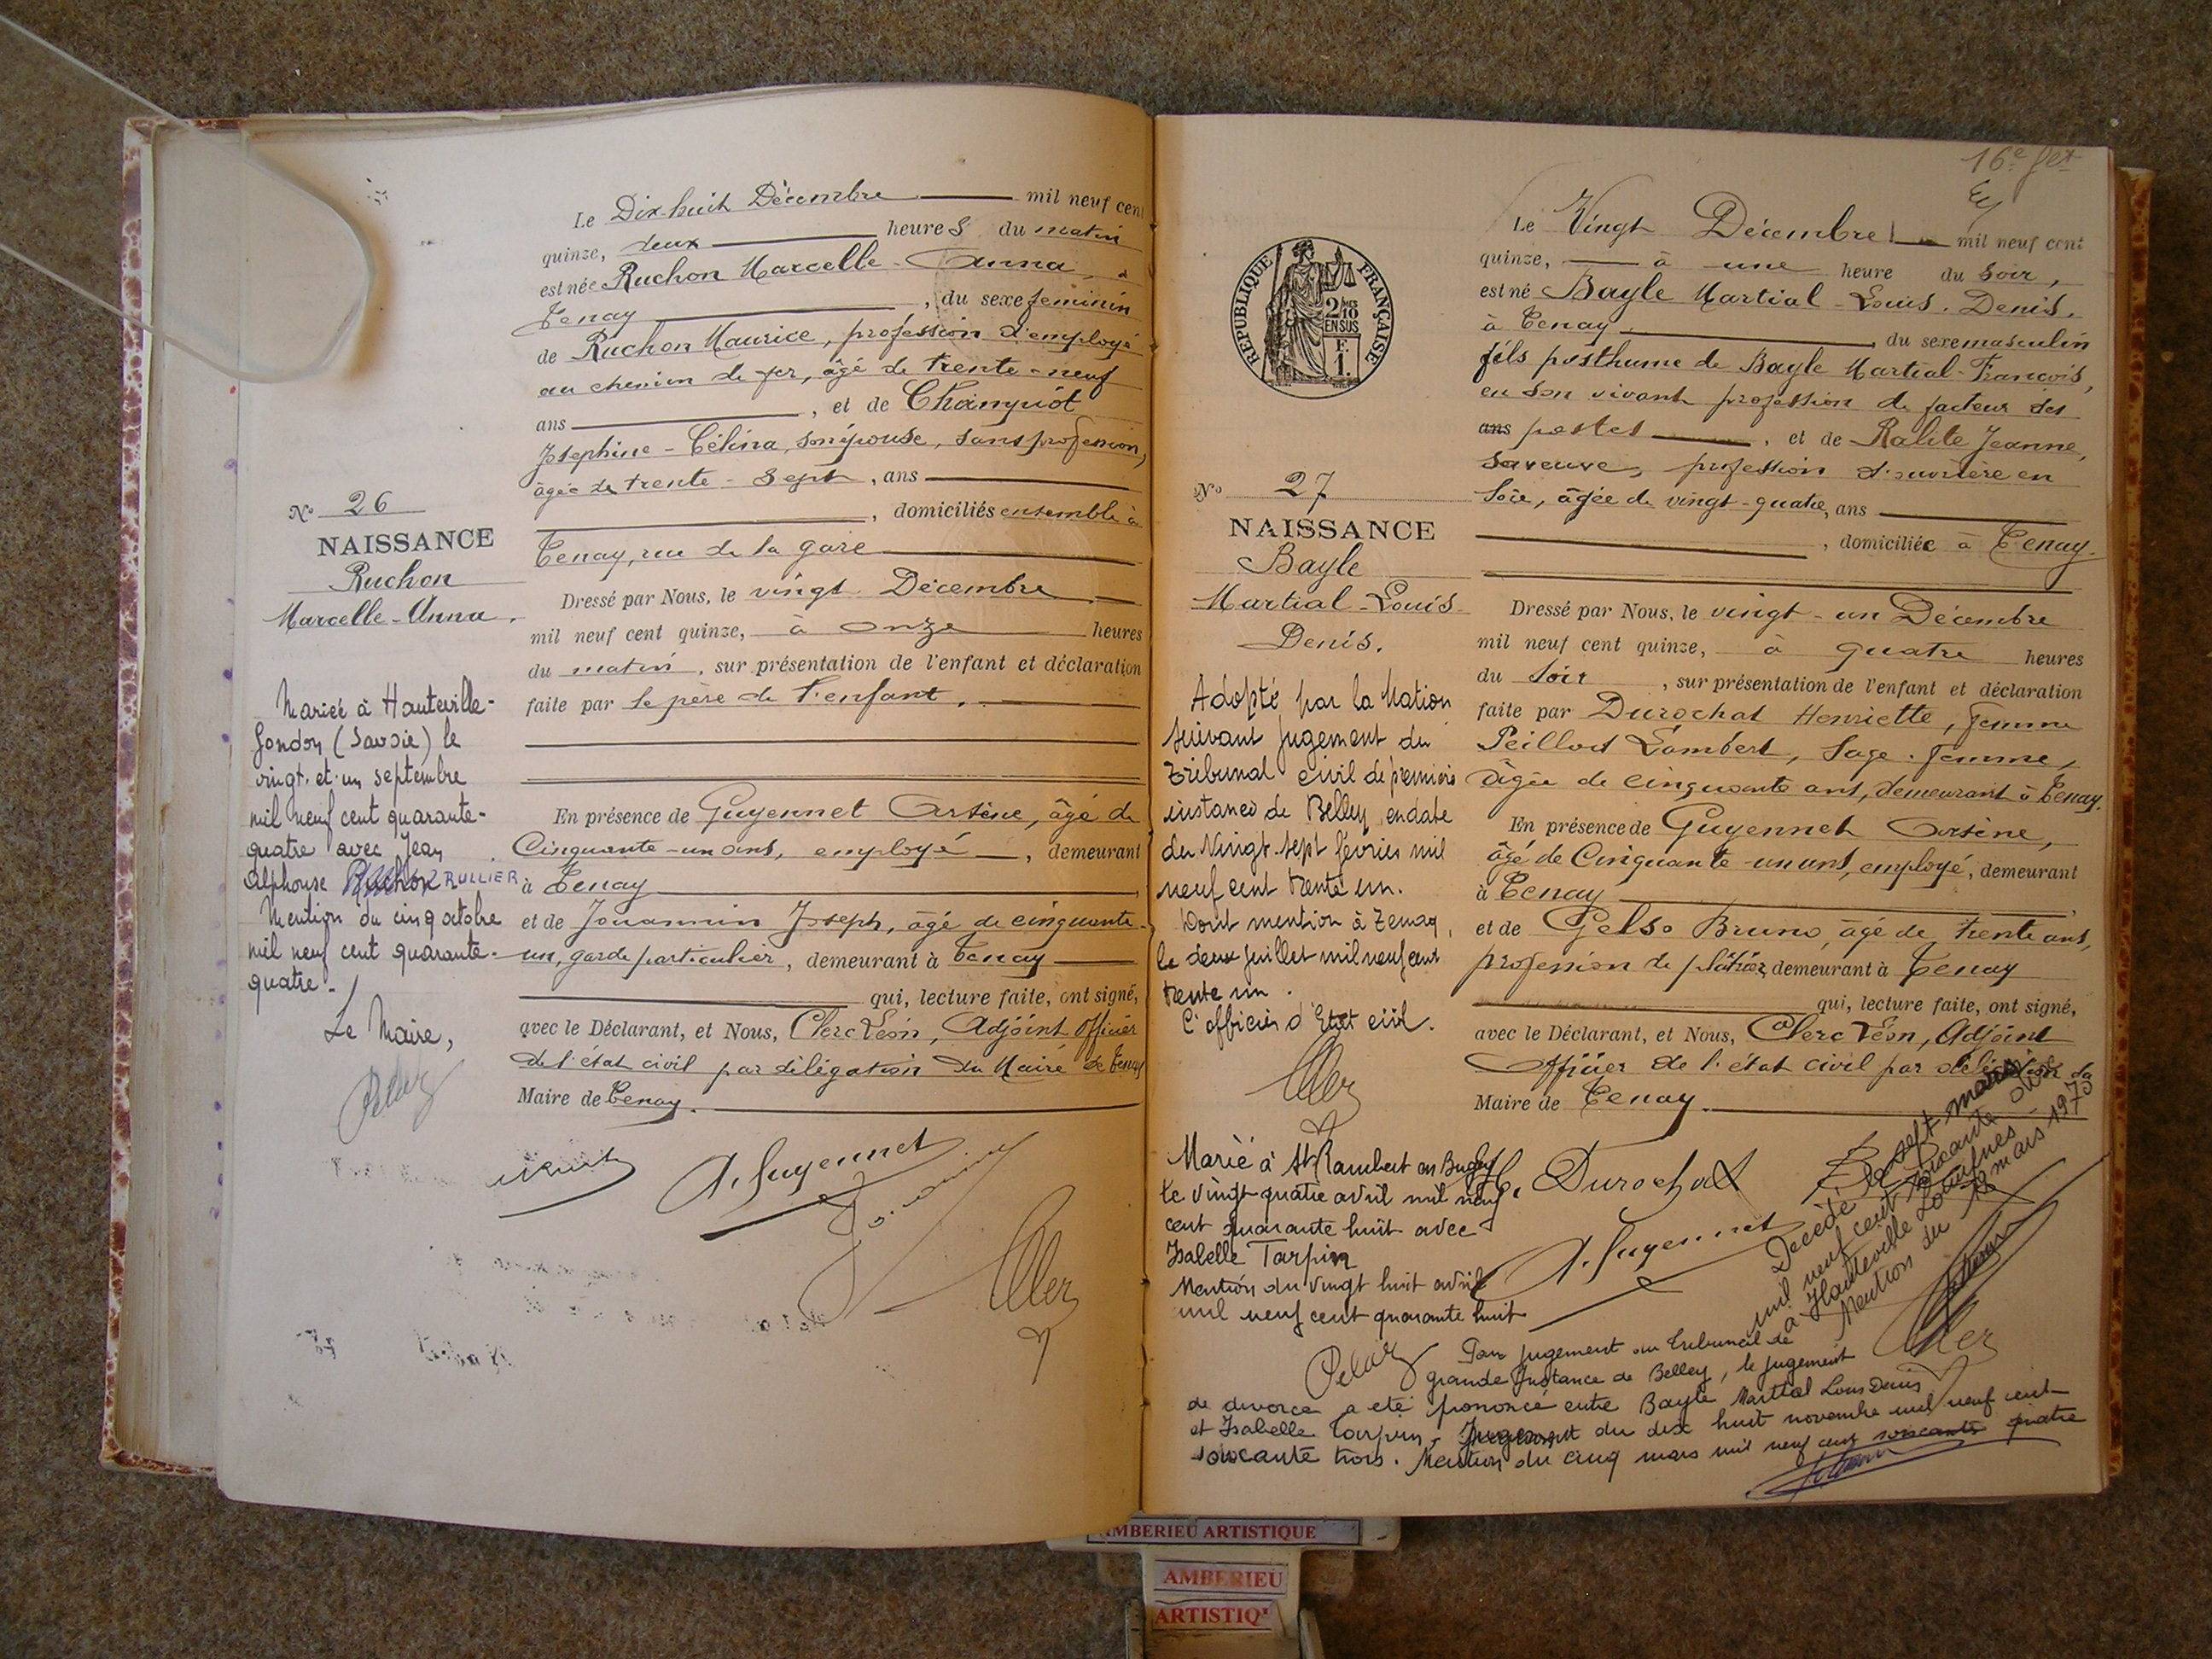 Le Dix-huit Décembre mil neuf cent
quinze, deux heures du matin
est née Ruchon Marcelle-Anna, à
Tenay, du sexe féminin
de Ruchon Maurice, profession d'employé
au chemin de fer, âgé de trente-neuf
ans, et de Chanquiot
Joséphine-Célina, son épouse, sans profession,
âgée de trente-sept, ans
, domiciliés ensemble à
Tenay, rue de la gare
Dressé par Nous, le vingt Décembre
mil neuf cent quinze, à onze heures
du matin, sur présentation de l'enfant et déclaration
faite par le père de l'enfant.
En présence de Guyennet Arsène, âgé de
Cinquante-un ans, employé, demeurant
à Tenay
et de Jouannin Joseph, âgé de cinquante-
un, garde particulier, demeurant à Tenay
qui, lecture faite, ont signé,
avec le Déclarant, et Nous, Clerc Léon, Adjoint officier
de l'état civil par délégation du Maire de Tenay
Maire de Tenay.
A. Guyennet
Nº 26
NAISSANCE
Ruchon
Marcelle-Anna.
Mariée à Hauteville-
Gondon (Savoie) le
vingt-et-un septembre
mil neuf cent quarante-
quatre avec Jean
Alphonse Ruchon RULLIER
Mention du cinq octobre
mil neuf cent quarante-
quatre.
Le Maire,
16e fet
Le Vingt Décembre mil neuf cent
quinze, à une heure du soir,
est né Bayle Martial-Louis-Denis,
à Tenay, du sexe masculin
fils posthume de Bayle Martial-François,
en son vivant profession de facteur des
ans postes, et de Ralite Jeanne,
sa veuve, profession d'ouvrière en
soie, âgée de vingt-quatre, ans
, domiciliée à Tenay.
Dressé par Nous, le vingt-un Décembre
mil neuf cent quinze, à quatre heures
du soir, sur présentation de l'enfant et déclaration
faite par Durochat Henriette, femme
Peillod Lambert, Sage-femme,
âgée de cinquante ans, demeurant à Tenay.
En présence de Guyennet Arsène,
âgé de Cinquante-un ans, employé, demeurant
à Tenay
et de Gelso Bruno, âgé de trente ans,
profession de plâtrier, demeurant à Tenay
qui, lecture faite, ont signé,
avec le Déclarant, et Nous, Clerc Léon, Adjoint
Officier de l'état civil par délégation du
Maire de Tenay.
H. Durochat
A. Guyennet
RÉPUBLIQUE FRANÇAISE
2/10
EN SUS
F.
1.
Nº 27
NAISSANCE
Bayle
Martial-Louis-
Denis.
Adopté par la Nation
suivant jugement du
tribunal civil de première
instance de Belley en date
du Vingt-sept février mil
neuf cent trente un.
Dont mention à Tenay,
le deux juillet mil neuf cent
trente un.
L'officier d'Etat civil.
Marié à St Rambert en Bugey
le vingt quatre avril mil neuf
cent quarante huit avec
Isabelle Tarpin
Mention du vingt huit avril
mil neuf cent quarante huit
Décédé le sept mars
mil neuf cent soixante dix
à Hauteville Lompnes
Mention du 18 mars 1970
Par jugement du tribunal de
grande Instance de Belley, le jugement
de divorce a été prononcé entre Bayle Martial Louis Denis
et Isabelle Tarpin. Jugement du dix huit novembre mil neuf cent
soixante trois. Mention du cinq mars mil neuf cent soixante quatre
AMBERIEU ARTISTIQUE
AMBERIEU
ARTISTIQ